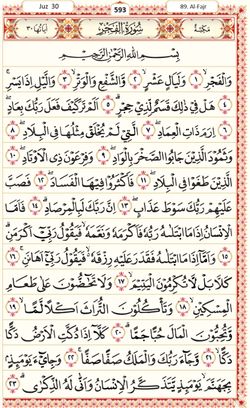 Juz 30
593
89. Al-Fajr
مَكِّيَّة
سُورَةُ الْفَجْرِ
آيَاتُهَا ٣٠
بِسْمِ اللَّهِ الرَّحْمَٰنِ الرَّحِيمِ
وَالْفَجْرِ ١ وَلَيَالٍ عَشْرٍ ٢ وَالشَّفْعِ وَالْوَتْرِ ٣ وَاللَّيْلِ إِذَا يَسْرِ
٤ هَلْ فِي ذَٰلِكَ قَسَمٌ لِذِي حِجْرٍ ٥ أَلَمْ تَرَ كَيْفَ فَعَلَ رَبُّكَ بِعَادٍ
٦ إِرَمَ ذَاتِ الْعِمَادِ ٧ الَّتِي لَمْ يُخْلَقْ مِثْلُهَا فِي الْبِلَادِ ٨
وَثَمُودَ الَّذِينَ جَابُوا الصَّخْرَ بِالْوَادِ ٩ وَفِرْعَوْنَ ذِي الْأَوْتَادِ ١٠
الَّذِينَ طَغَوْا فِي الْبِلَادِ ١١ فَأَكْثَرُوا فِيهَا الْفَسَادَ ١٢ فَصَبَّ
عَلَيْهِمْ رَبُّكَ سَوْطَ عَذَابٍ ١٣ إِنَّ رَبَّكَ لَبِالْمِرْصَادِ ١٤ فَأَمَّا
الْإِنْسَانُ إِذَا مَا ابْتَلَاهُ رَبُّهُ فَأَكْرَمَهُ وَنَعَّمَهُ فَيَقُولُ رَبِّي أَكْرَمَنِ
١٥ وَأَمَّا إِذَا مَا ابْتَلَاهُ فَقَدَرَ عَلَيْهِ رِزْقَهُ فَيَقُولُ رَبِّي أَهَانَنِ ١٦
كَلَّا بَلْ لَا تُكْرِمُونَ الْيَتِيمَ ١٧ وَلَا تَحَاضُّونَ عَلَىٰ طَعَامِ
الْمِسْكِينِ ١٨ وَتَأْكُلُونَ التُّرَاثَ أَكْلًا لَمًّا ١٩
وَتُحِبُّونَ الْمَالَ حُبًّا جَمًّا ٢٠ كَلَّا إِذَا دُكَّتِ الْأَرْضُ دَكًّا
دَكًّا ٢١ وَجَاءَ رَبُّكَ وَالْمَلَكُ صَفًّا صَفًّا ٢٢ وَجِيءَ يَوْمَئِذٍ
بِجَهَنَّمَ يَوْمَئِذٍ يَتَذَكَّرُ الْإِنْسَانُ وَأَنَّىٰ لَهُ الذِّكْرَىٰ ٢٣